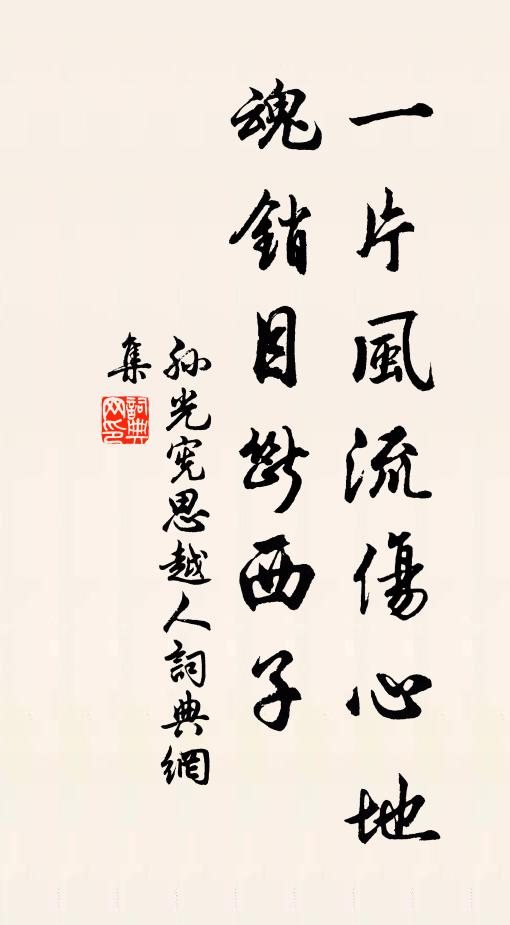 一片風流傷心地
魂銷目斷西子
孫光憲思越人詞典網
集
詞典
网印